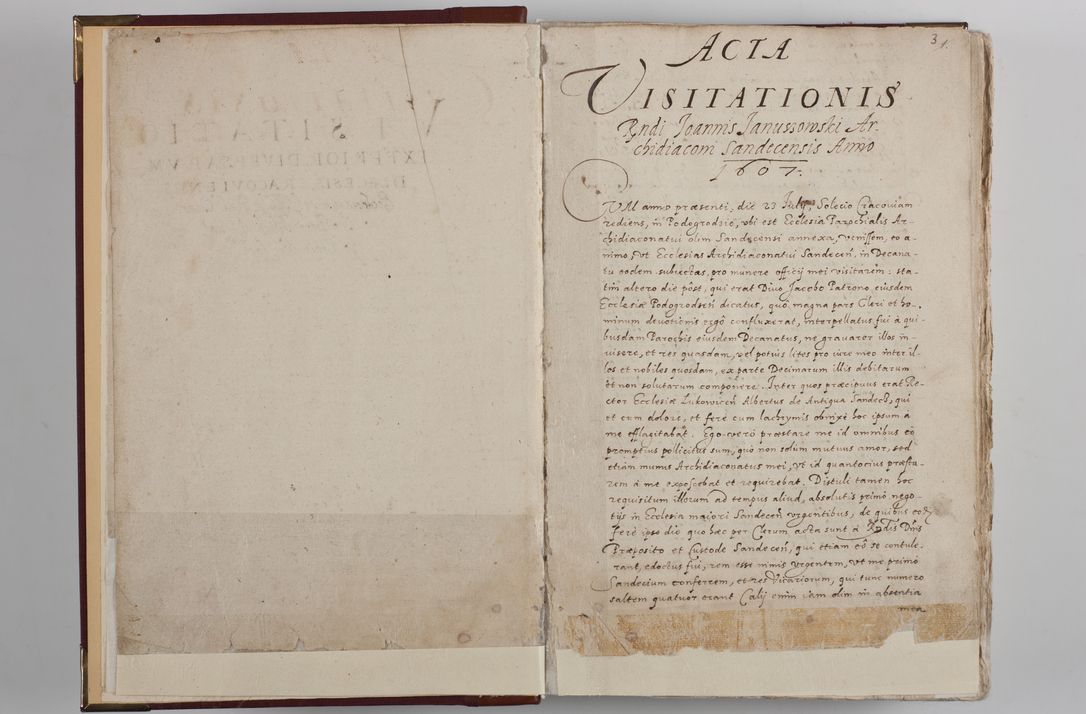 3
1.
ACTA
VISITATIONIS
Rndi Joannis Januszowski Ar-
chidiaconi Sandecensis Anno
1607.
CVM anno præsenti, die 23 July, Solecio Cracoviam
rediens, in Podogrodzie, vbi est Ecclesia Parochialis Ar-
chidiaconatui olim Sandecensi annexa, venissem, eo a-
nimo, vt Ecclesias Archidiaconatui Sandecen, in Decana-
tu eodem subiectas, pro munere officij mei visitarem: sta-
tim altero die pòst, qui erat Diuo Jacobo Patrono eiusdem
Ecclesiæ Podogrodzen dicatus, quò magna pars Cleri et ho-
minum deuotionis ergò confluxerat, interpellatus fui à qui-
busdam Parochis eiusdem Decanatus, ne grauarer illos in-
uisere, et res quasdam, vel potius lites pro iure meo inter il-
los et nobiles quosdam, ex parte Decimarum illis debitarum
et non solutarum componere. Inter quos præcipuus erat Re-
ctor Ecclesiæ Lukowicen Albertus de Antiqua Sandecz, qui
et cum dolore, et ferè cum lachrymis obnixè hoc ipsum a
me efflagitabat. Ego verò præstare me id omnibus eò
promptius pollicitus sum, quò non solùm mutuus amor, sed
etiam munus Archidiaconatus mei, vt id quantocius præsta-
rem à me exposcebat et requirebat. Distuli tamen hoc
requisitum illorum ad tempus aliud, absolutis primò nego-
tijs in Ecclesia maiori Sandecen vrgentibus, de quibus eod
ferè ipso die quo hæc per Clerum acta sunt à Rndis Dnis
Præposito et Custode Sandecen, qui etiam eò se contule-
rant, edoctus fui, rem esse nimis vrgentem, vt me primò
Sandecium conferrem, et res Vicariorum, qui tunc numero
saltem quatuor erant Calij enim iam olim in absentia
mea